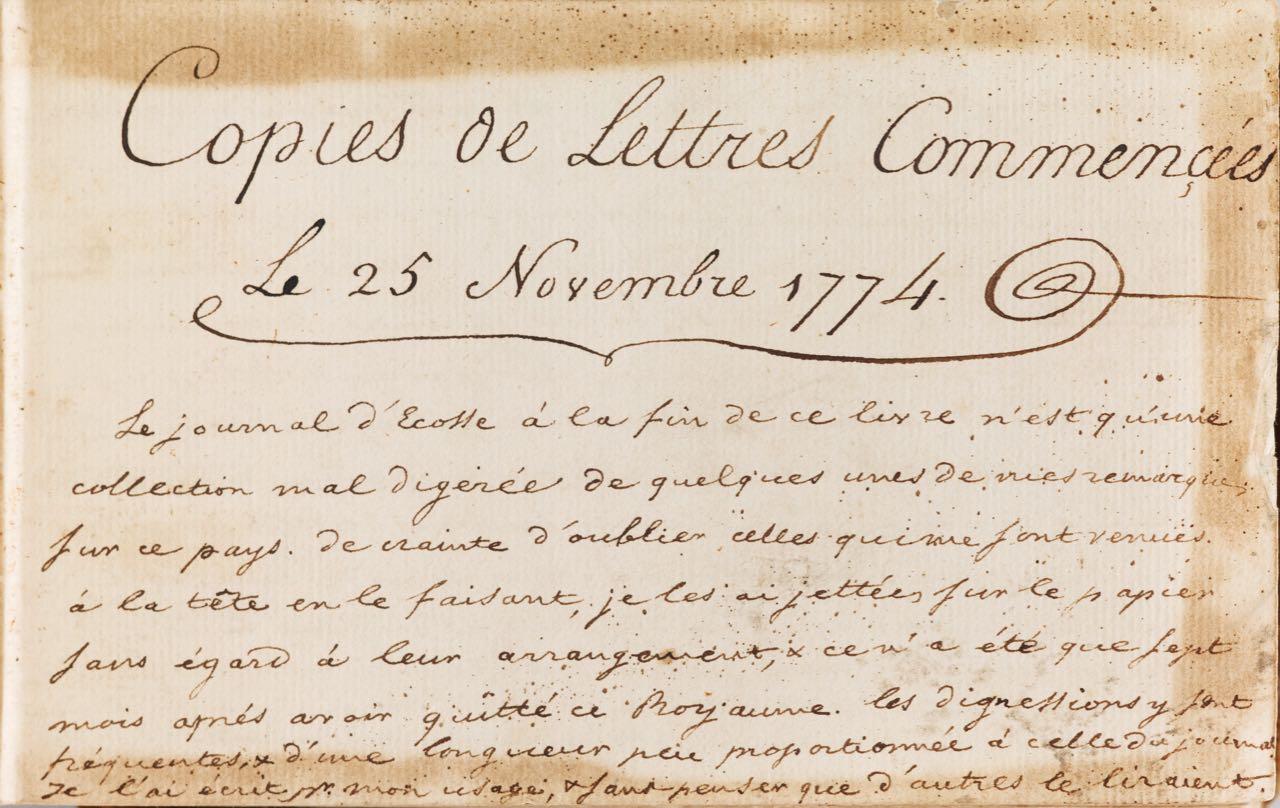 Copies de Lettres Commençées
Le 25 Novembre 1774.
Le journal d'Ecosse à la fin de ce livre n'est qu'une
collection mal digérée de quelques unes de mes remarques
sur ce pays. de crainte d'oublier celles qui me sont venües.
à la tête en le faisant, je les ai jettées sur le papier
sans égard à leur arrangement, & ce n'a été que sept
mois après avoir quitté ce Royaume. les digressions y sont
fréquentes, & d'une longueur peu proportionnée à celle du journal
Je l'ai écrit pr. mon usage, & sans penser que d'autres le liraient.